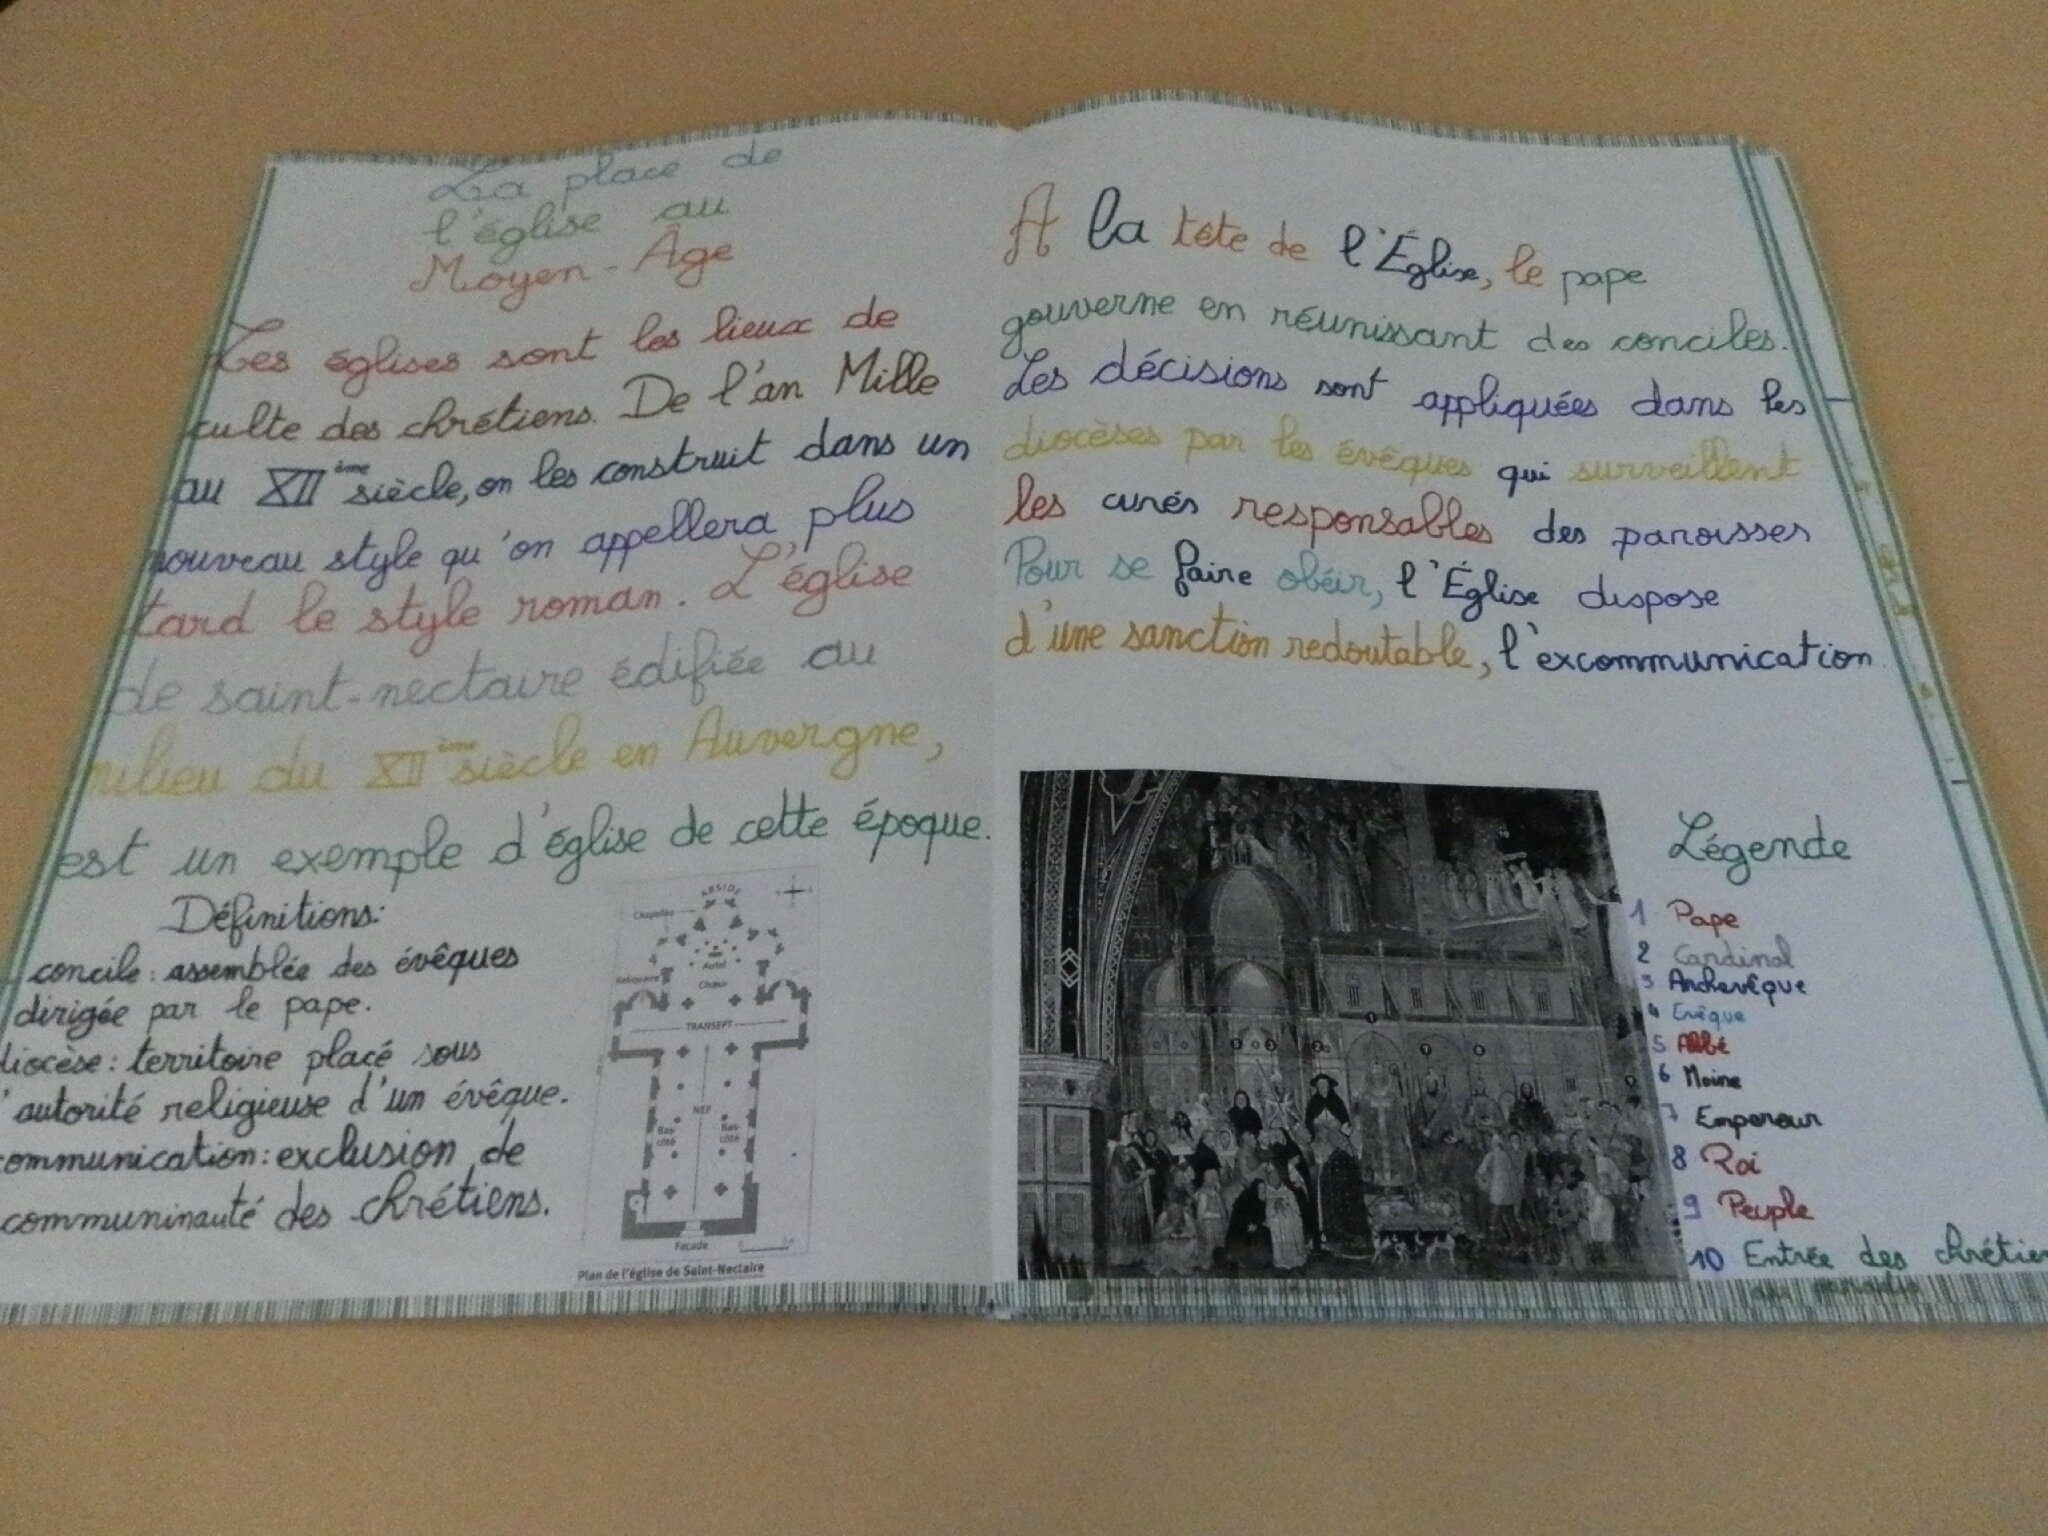 La place de
l'église au
Moyen-Âge
Les églises sont les lieux de
culte des chrétiens. De l'an Mille
au XII ème siècle, on les construit dans un
nouveau style qu'on appellera plus
tard le style roman. L'église
de saint-nectaire édifiée au
milieu du XII ème siècle en Auvergne,
est un exemple d'église de cette époque.
Définitions:
concile: assemblée des évêques
dirigée par le pape.
diocèse: territoire placé sous
l'autorité religieuse d'un évêque.
communication: exclusion de
communinauté des chrétiens.
ABSIDE
Chapelles
Autel
Reliquaire
Chœur
TRANSEPT
NEF
Bas-
côté
Bas-
côté
Façade
Plan de l'église de Saint-Nectaire
A la tête de l'Église, le pape
gouverne en réunissant des conciles.
Les décisions sont appliquées dans les
diocèses par les évêques qui surveillent
les curés responsables des paroisses
Pour se faire obéir, l'Église dispose
d'une sanction redoutable, l'excommunication.
10
1
3
2
7
8
9
Légende
1 Pape
2 Cardinal
3 Archevêque
4 Evêque
5 Abbé
6 Moine
7 Empereur
8 Roi
9 Peuple
10 Entrée des chrétien
au paradis